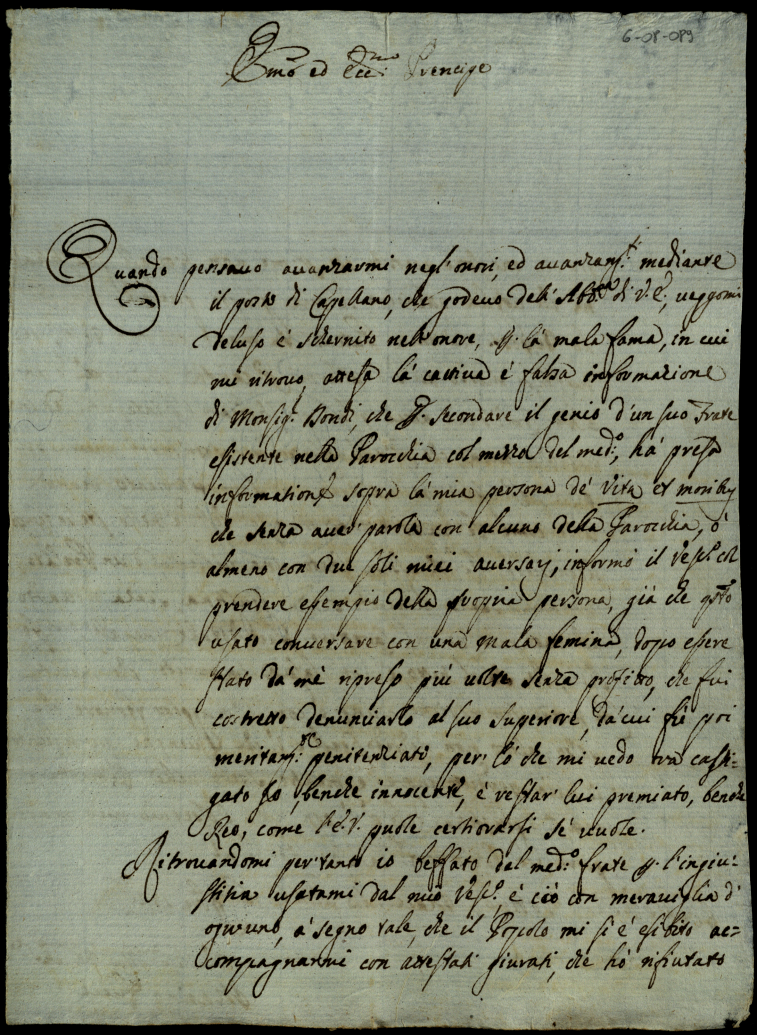 6-08-089
Emo ed Ecc.mo Prencipe
Quando pensavo avanzarmi negl'onori, ed avanzam.ti mediante
il posto di Capellano, che godevo dell' Abb. di V.E., veggomi
deluso è schernito nell'onore, p. la mala fama, in cui
mi ritrovo, attesa la cattiva è falsa informazione
di Monsig.r Bondi, che p. secondare il genio d'un suo Frate
esistente nella Parocchia col mezzo del med.o, hà presa
information sopra la mia persona de' Vita et moribus
che senza aver parola con alcuno della Parocchia, ò
almeno con due soli miei aversarj, informò il Vesc.o col
prendere esempio della propria persona, già che q.sto
usato conversare con una mala femina, dopo essere
stato da mè ripreso più volte senza profitto, che fui
costretto denunciarlo al suo Superiore, da cui fù poi
meritam.te penitenziato, per lò che mi vedo ora casti-
gato Io, benche innocente, è restar lui premiato, benche
Reo, come V.E. puole certiorarsi sè vuole.
Ritrovandomi per tanto io beffato dal med.o frate p. l'ingiu-
stitia usatami dal mio Vesc.o è ciò con meraviglia d'
ogn'uno, à segno tale, che il Popolo mi si è esibito ac=
compagnarmi con attestati giurati, che hò rifiutato